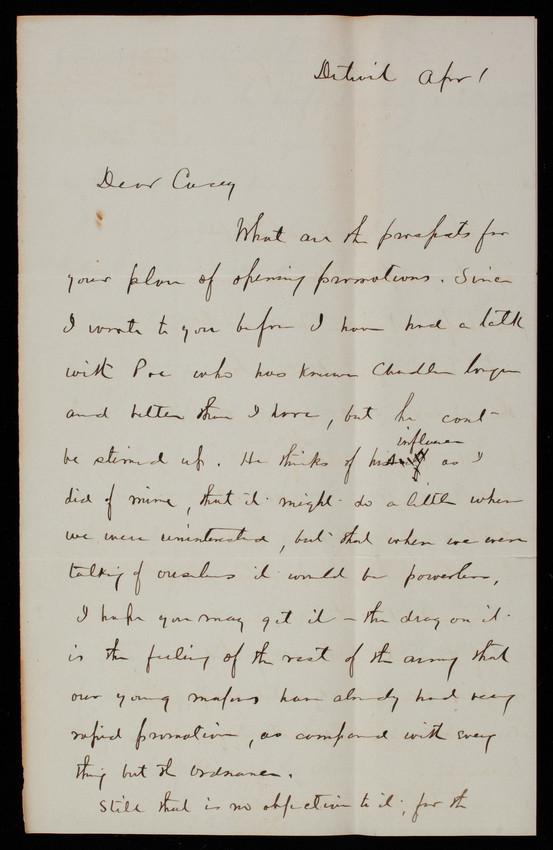 Detroit Apr 1
Dear Casey
What are the prospects for
your plan of opening promotions. Since
I wrote to you before I have had a talk
with Poe who has known Chandler longer
and better than I have, but he cant
be stirred up. He thinks of his influence as I
did of mine, that it might do a little when
we were uninterested, but that when we were
talking of ourselves it would be powerless,
I hope you may get it – the drag on it
is the feeling of the rest of the army that
our young majors have already had very
rapid promotion, as compared with every
thing but the Ordnance.
Still that is no objection to it, for the